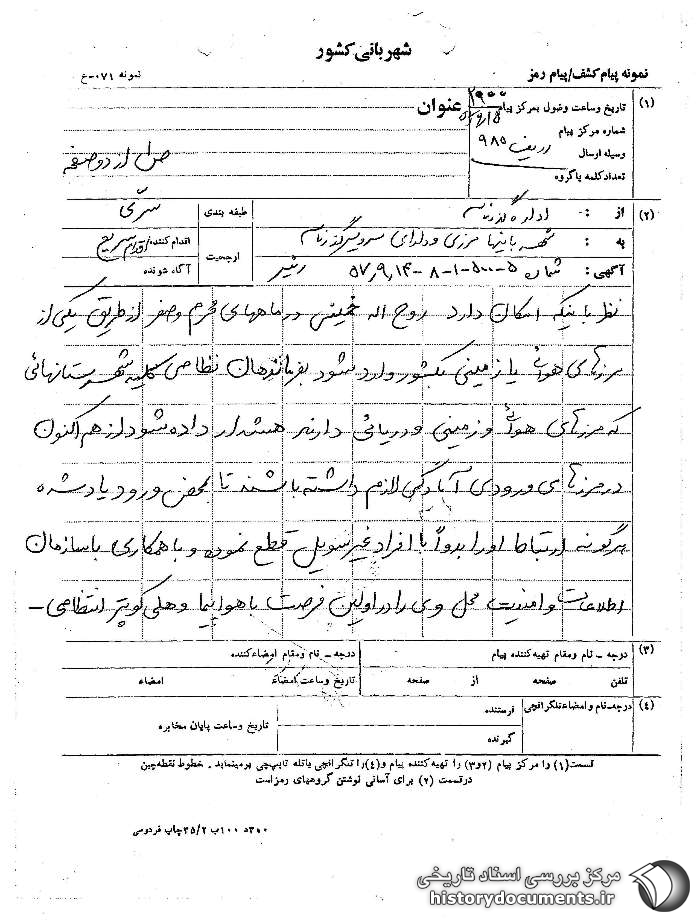 شهربانی کشور
نمونه پیام کشف/پیام رمز
نمونه ۰۷۱-ع
(۱) تاریخ وساعت وصول بمرکز پیام ۲۹۰۰
عنوان
شماره مرکز پیام
وسیله ارسال ۹۸۵
تعدادکلمه یاگروه
(۲) از :- اداره گذرنامه
طبقه بندی سرّی
به : شهربانیهای مرزی و دارای سرویس گذرنامه
ارجحیت
اقدام‌کننده اقدام سریع
آگاه شونده
آگهی : شماره ۵-۵۰۰-۱-۸-۵۷٫۹٫۱۴
نظر باینکه امکان دارد روح اله خمینی در ماههای محرم و صفر از طریق یکی از
مرزهای هوائی یا زمینی بکشور وارد شود بفرماندهان نظامی کلیه شهرستانهائی
که مرزهای هوائی و زمینی و دریائی دارند هشدار داده شود از هم اکنون
در مرزهای ورودی آبادگی لازم داشته باشند تا بمحض ورود یادشده
هرگونه ارتباط او را بدواً با افراد غیر مسئول قطع نموده و با همکاری با سازمان
اطلاعات و امنیت محل وی را در اولین فرصت با هواپیما و هلی کوپتر انتظامی -
(۳) درجه - نام ومقام تهیه‌کننده پیام
درجه - نام ومقام امضاءکننده
تلفن صفحه از صفحه
تاریخ وساعت امضاء امضاء
(۴) درجه-نام وامضاءتلگرافچی
فرستنده
گیرنده
تاریخ وساعت پایان مخابره
قسمت(۱) را مرکز پیام (۲و۳) را تهیه‌کننده پیام و(۴)را تلگرافچی یاتله تایپ‌چی پرمینماید . خطوط نقطه‌چین
درقسمت (۲) برای آسانی نوشتن گروههای رمزاست
۳۰۰د ۱۰۰ب ۳۵/۲ چاپ فردوسی
مرکز بررسی اسناد تاریخی
historydocuments.ir